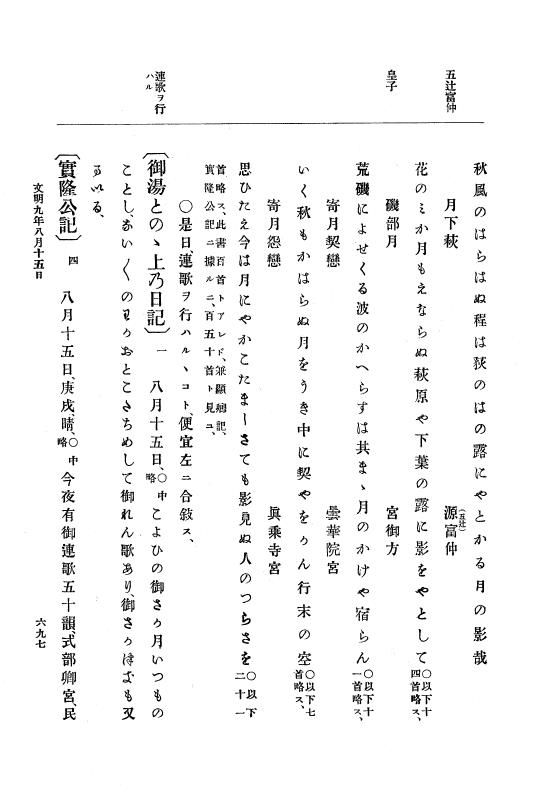 五辻富仲
皇子
連歌ヲ行ハル
秋風のはらはぬ程は荻のはの露にやとかる月の影哉
月下萩　源富仲
（五辻）
花のミか月もえならぬ萩原や下葉の露に影をやとして〇以下十四首略ス、
磯部月　宮御方
荒磯によせくる波のかへらすは其まゝ月のかけや宿らん〇以下十一首略ス、
寄月契戀　曇華院宮
いく秋もかはらぬ月をうき中に契やをうん行末の空〇以下七首略ス、
寄月怨戀　眞乘寺宮
思ひたえ今は月にやかこたましさても影見ぬ人のつらさを〇以下二十一
首略ス、此書百首トアレド、兼顯卿記、實隆公記ニ據ルニ、百五十首ト見ユ、
〇是日、連歌ヲ行ハルヽコト、便宜左ニ合敍ス、
〔御湯とのゝ上乃日記〕一　八月十五日、〇中略こよひの御さう月いつもの
ことし、おい〳〵のわうおとこさちめして御れん歌あり、御さうはても又
るいる、
〔實隆公記〕四　八月十五日、庚戌晴、〇中略今夜有御連歌五十韻、式部卿宮、民
文明九年八月十五日
六九七